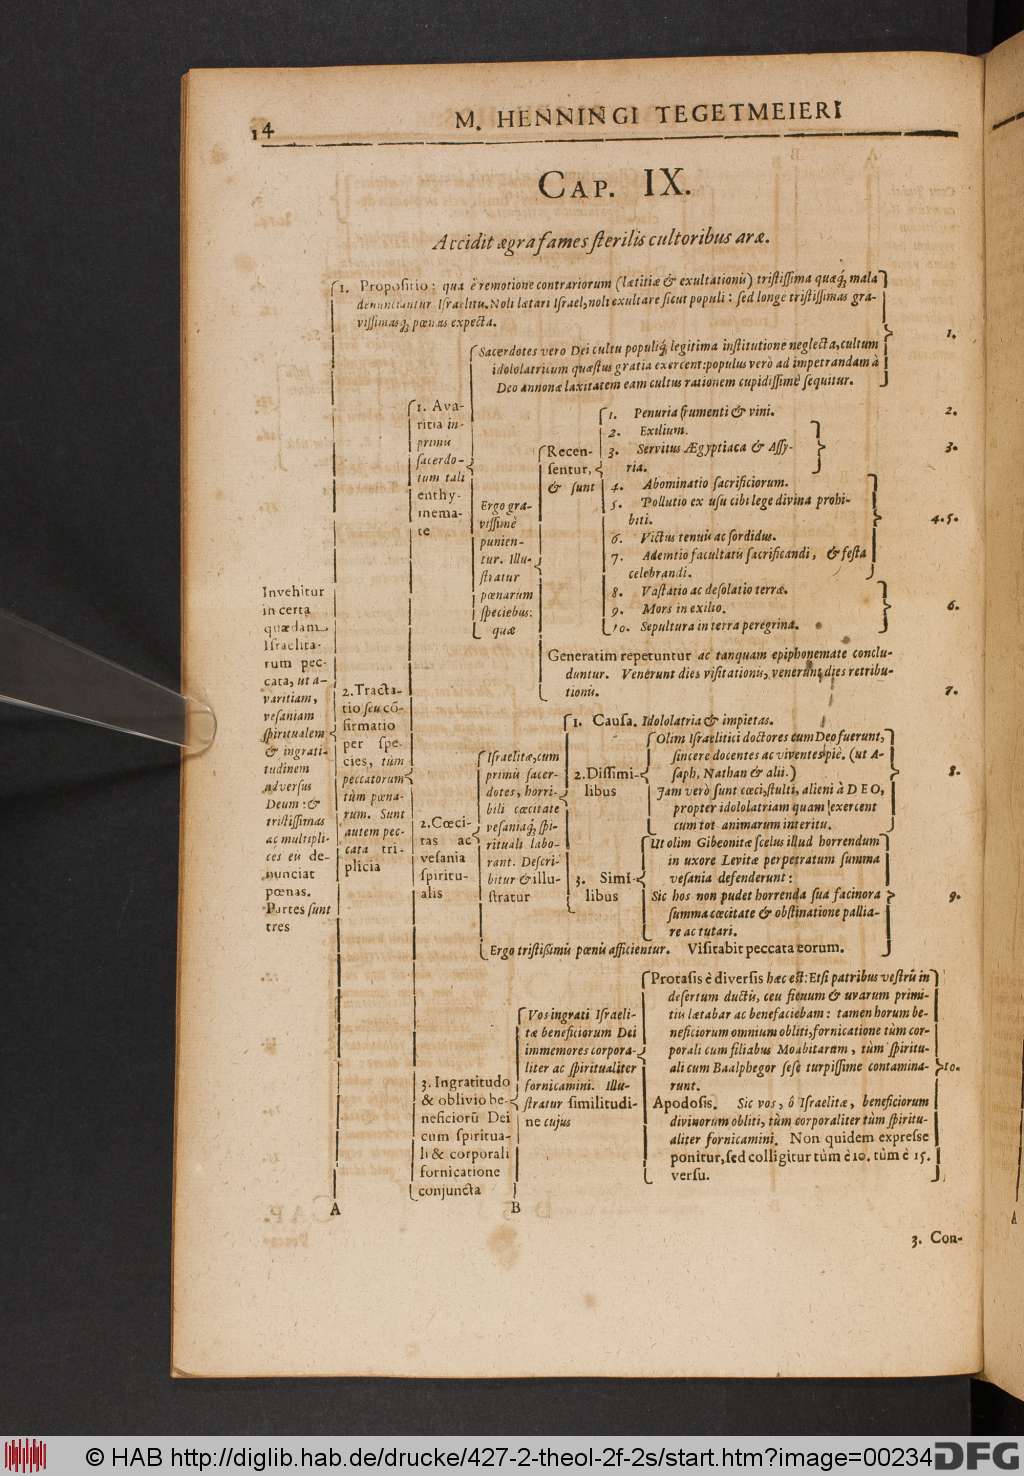 14
M. HENNINGI TEGETMEIERI
CAP. IX.
Accidit ægra fames sterilis cultoribus aræ.
Invehitur
in certa
quædam
Israelita-
rum pec-
cata, ut a-
varitiam,
vesaniam
spiritualem
& ingrati-
tudinem
adversus
Deum: &
tristissimas
ac multipli-
ces eis de-
nunciat
pœnas.
Partes sunt
tres
1. Propositio: qua è remotione contrariorum (lætitiæ & exultationis) tristissima quæq́; mala
denunciantur Israelitis. Noli lætari Israel, noli exultare sicut populi: sed longe tristissimas gra-
vissimasq́; pœnas expecta.
1.
2. Tracta-
tio seu cõ-
firmatio
per spe-
cies, tùm
peccatorum
tùm pœna-
rum. Sunt
autem pec-
cata tri-
plicia
1. Ava-
ritia in-
primis
sacerdo-
tum tali
enthy-
mema-
te
Sacerdotes vero Dei cultu populiq́; legitima institutione neglecta, cultum
idololatricum quæstus gratia exercent: populus verò ad impetrandam à
Deo annonæ laxitatem eam cultus rationem cupidissimè sequitur.
Ergo gra-
vissimè
punien-
tur. Illu-
stratur
pœnarum
speciebus:
quæ
Recen-
sentur,
& sunt
1. Penuria frumenti & vini.
2.
2. Exilium.
3. Servitus Ægyptiaca & Assy-
3.
ria.
4. Abominatio sacrificiorum.
5. Pollutio ex usu cibi lege divina prohi-
biti.
4. 5.
6. Victus tenuis ac sordidus.
7. Ademtio facultatis sacrificandi, & festa
celebrandi.
8. Vastatio ac desolatio terræ.
9. Mors in exilio.
6.
10. Sepultura in terra peregrina.
Generatim repetuntur ac tanquam epiphonemate conclu-
duntur. Venerunt dies visitationis, venerunt dies retribu-
tionis.
7.
2. Cœci-
tas ac
vesania
spiritu-
alis
Israelitæ, cum
primis sacer-
dotes, horri-
bili cœcitate
vesaniaq́; spi-
rituali labo-
rant. Descri-
bitur & illu-
stratur
1. Causa. Idololatria & impietas.
2. Dissimi-
libus
Olim Israelitici doctores cum Deo fuerunt,
sincere docentes ac viventes pie. (ut A-
saph, Nathan & alii.)
8.
Jam verò sunt cœci, stulti, alieni à DEO,
propter idololatriam quam exercent
cum tot animarum interitu.
3. Simi-
libus
Ut olim Gibeonitæ scelus illud horrendum
in uxore Levitæ perpetratum summa
vesania defenderunt:
Sic hos non pudet horrenda sua facinora
9.
summa cœcitate & obstinatione pallia-
re ac tutari.
Ergo tristissimis pœnis afficientur. Visitabit peccata eorum.
3. Ingratitudo
& oblivio be-
neficiorũ Dei
cum spiritua-
li & corporali
fornicatione
conjuncta
Vos ingrati Israeli-
tæ beneficiorum Dei
immemores corpora-
liter ac spiritualiter
fornicamini. Illu-
stratur similitudi-
ne cujus
Protasis è diversis hæc est: Etsi patribus vestris in
desertum ductis, ceu ficuum & uvarum primi-
tiis lætabar ac benefaciebam: tamen horum be-
neficiorum omnium obliti, fornicatione tùm cor-
porali cum filiabus Moabitarum, tùm spiritu-
ali cum Baalphegor sese turpissime contamina-
10.
runt.
Apodosis. Sic vos, ô Israelitæ, beneficiorum
divinorum obliti, tùm corporaliter tùm spiritu-
aliter fornicamini. Non quidem expresse
ponitur, sed colligitur tùm è 10. tùm è 15.
versu.
A
B
3. Con-
A
© HAB http://diglib.hab.de/drucke/427-2-theol-2f-2s/start.htm?image=00234
DFG